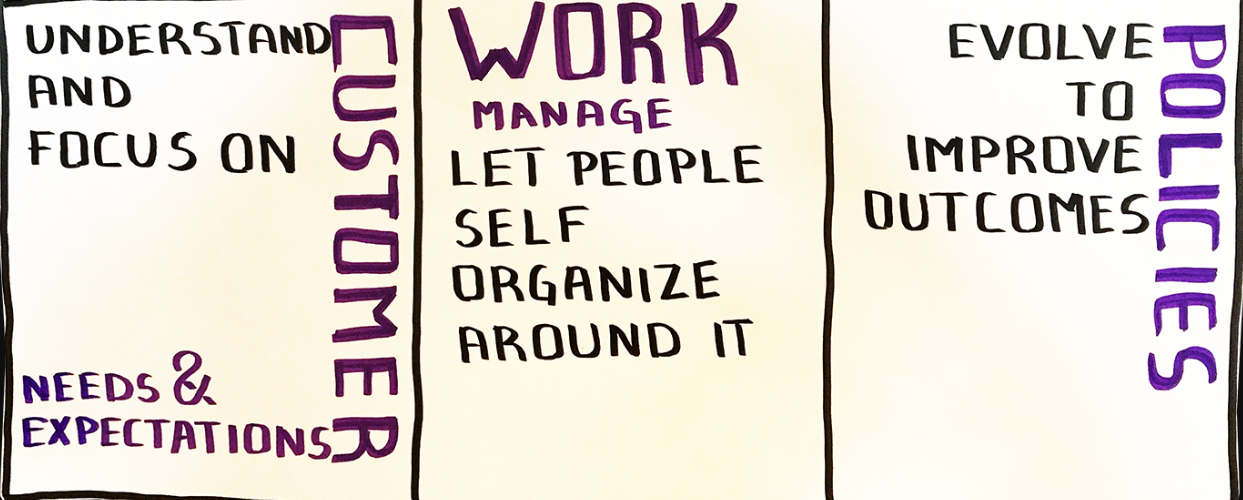 UNDERSTAND
AND
FOCUS ON
CUSTOMER
NEEDS &
EXPECTATIONS
WORK
MANAGE
LET PEOPLE
SELF
ORGANIZE
AROUND IT
EVOLVE
TO
IMPROVE
OUTCOMES
POLICIES